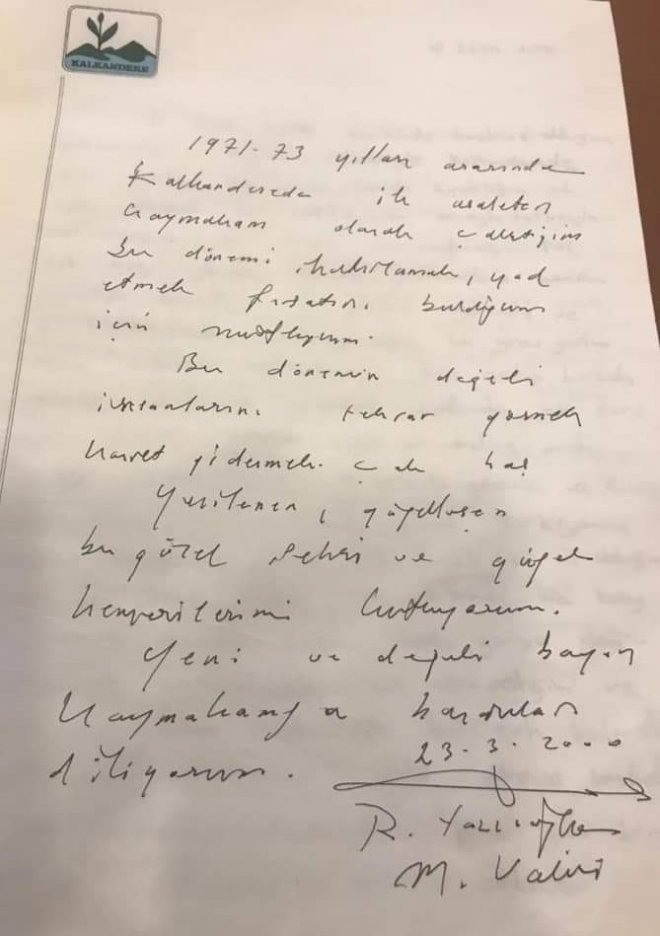 KALKANDERE
1971-73 yılları arasında
Kalkanderede ilk asaleten
Kaymakam olarak çalıştığım
Bu dönemi hatırlamak, yad
etmek fırsatını bulduğum
için mutluyum.
Bu dönemin değerli
insanlarını tekrar görmek
hasret gidermek çok hoş
Yeşillenen, güzelleşen
bu güzel şehri ve güzel
hemşerilerimi kutluyorum.
Yeni ve değerli bayan
Kaymakamıza başarılar
diliyorum.
23.3.2000
R. Yazıcıoğlu
M. Valisi